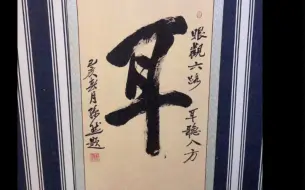 眼觀六路
耳聽八方
耳
己亥
月
題